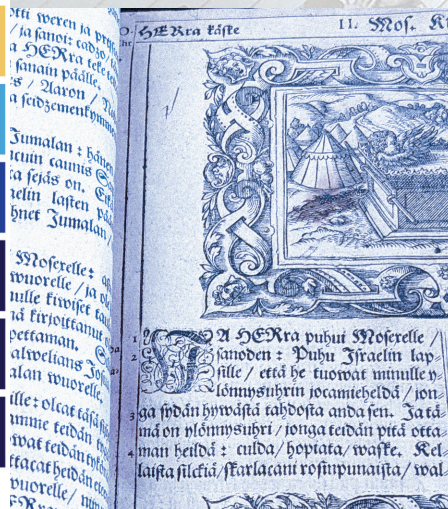 weren ja
/ ja sanoi: cadzo/
a HERra teke
sanain päälle.
/ Aaron /
a seidzemenkymme
Jumalan: hänen
icuin caunis
on.
relin lasten
Jumalan/
Mosexelle:
wuorelle / ja
nulle kiwiset
nä kirjoittanut
pettaman.
alwelians
alan wuorelle
ille: olcat täsä
mme teidän
owat teidän
ttacat heidän
wuorelle /
HERra käske
II. Mos. K
1 JA HERra puhui Mosexelle /
2 sanoden: Puhu Israelin lap-
sille / että he tuowat minulle y-
lönnysuhrin jocamieheldä / jon-
3 ga sydän hywästä tahdosta anda sen. Ja tä-
mä on ylönnysuhri / jonga teidän pitä otta-
4 man heildä: culda / hopiata / waske. Kel-
laista silckiä / skarlacani rosinpunaista / wal-